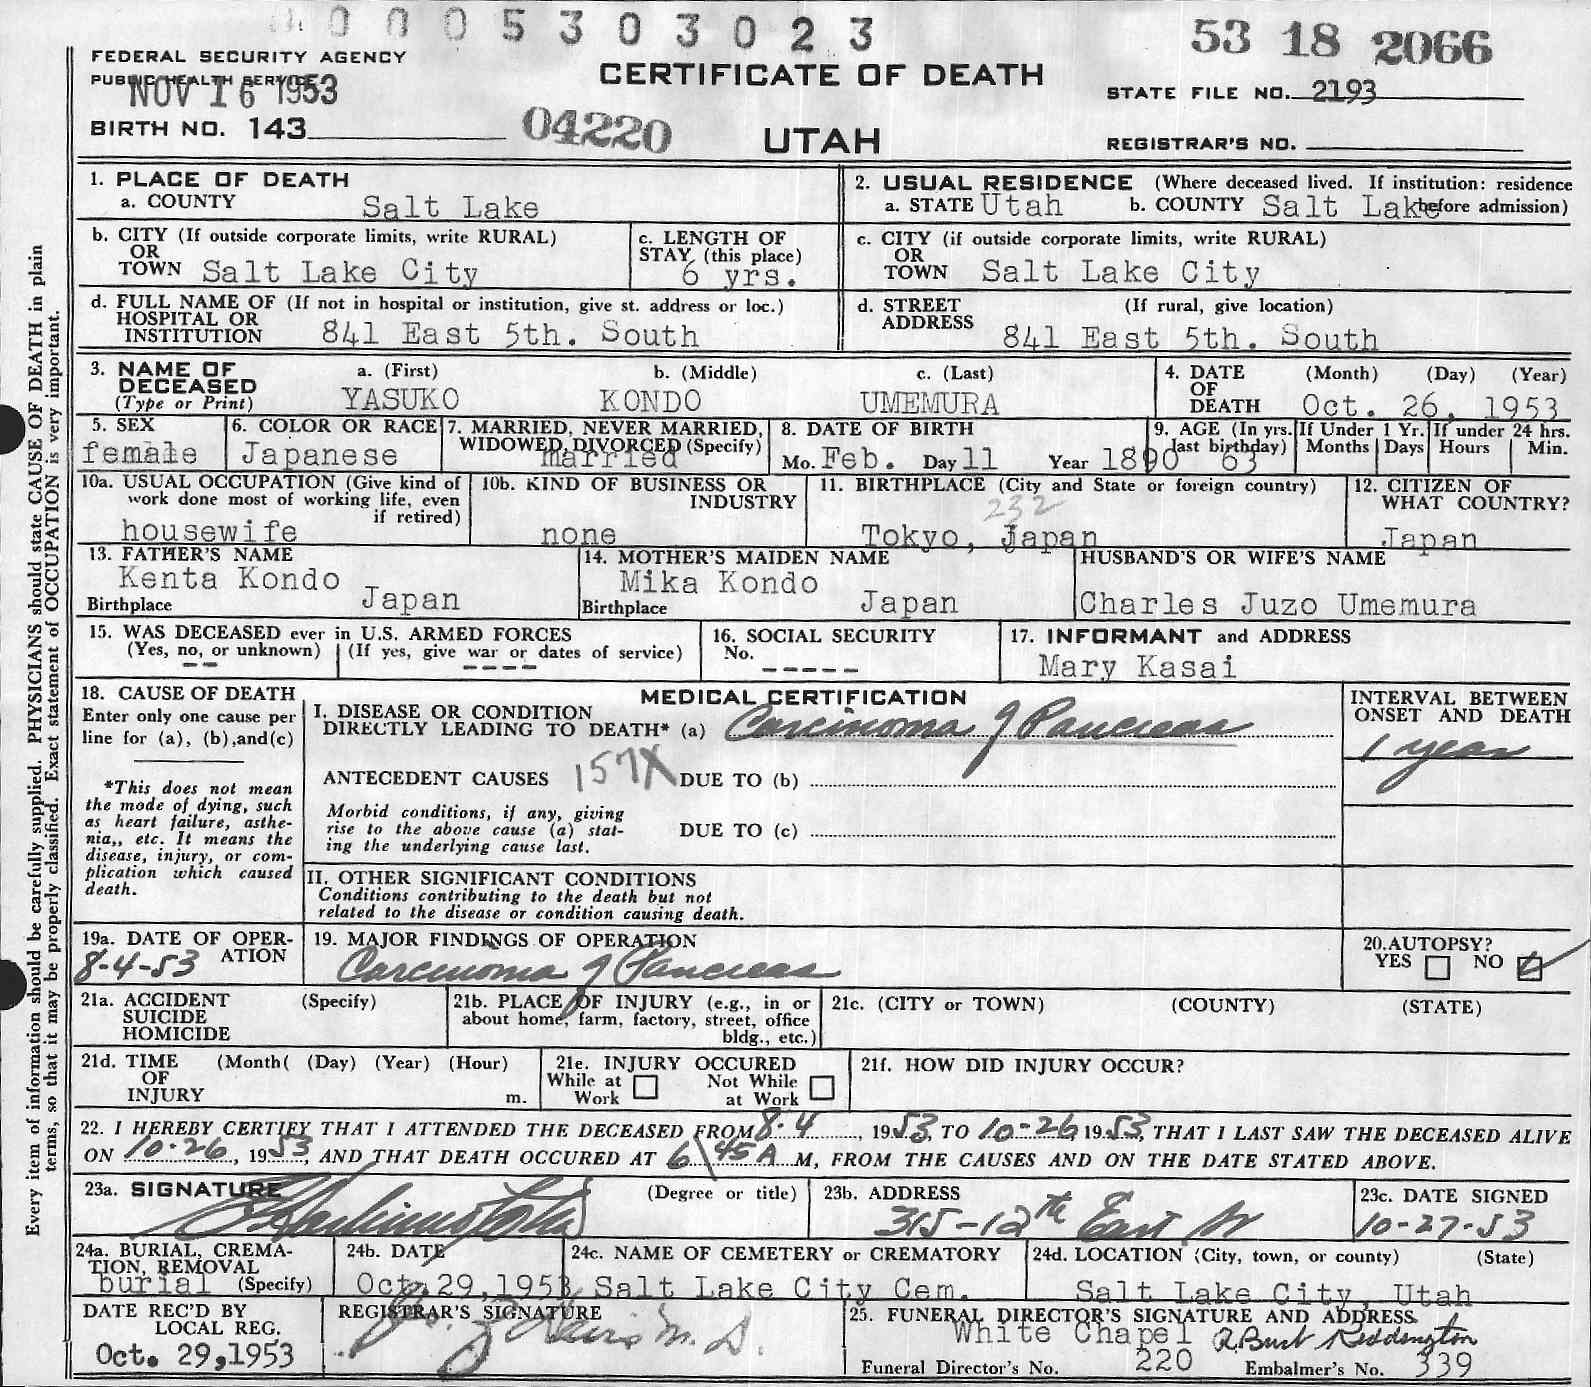 0005303023
53 18 2066
FEDERAL SECURITY AGENCY
PUBLIC HEALTH SERVICE
NOV 16 1953
CERTIFICATE OF DEATH
STATE FILE NO. 2193
BIRTH NO. 143
04220
UTAH
REGISTRAR'S NO.
Every item of information should be carefully supplied. PHYSICIANS should state CAUSE OF DEATH in plain
terms, so that it may be properly classified. Exact statement of OCCUPATION is very important.
1. PLACE OF DEATH
a. COUNTY Salt Lake
2. USUAL RESIDENCE (Where deceased lived. If institution: residence
before admission)
a. STATE Utah b. COUNTY Salt Lake
b. CITY (If outside corporate limits, write RURAL)
OR
TOWN Salt Lake City
c. LENGTH OF
STAY (this place)
6 yrs.
c. CITY (if outside corporate limits, write RURAL)
OR
TOWN Salt Lake City
d. FULL NAME OF (If not in hospital or institution, give st. address or loc.)
HOSPITAL OR
INSTITUTION 841 East 5th. South
d. STREET (If rural, give location)
ADDRESS 841 East 5th. South
3. NAME OF
DECEASED
(Type or Print)
a. (First) b. (Middle) c. (Last)
YASUKO KONDO UMEMURA
4. DATE (Month) (Day) (Year)
OF
DEATH Oct. 26, 1953
5. SEX
female
6. COLOR OR RACE
Japanese
7. MARRIED, NEVER MARRIED,
WIDOWED, DIVORCED (Specify)
married
8. DATE OF BIRTH
Mo. Feb. Day 11 Year 1890
9. AGE (In yrs.
last birthday)
63
If Under 1 Yr.
Months Days
If under 24 hrs.
Hours Min.
10a. USUAL OCCUPATION (Give kind of
work done most of working life, even
if retired)
housewife
10b. KIND OF BUSINESS OR
INDUSTRY
none
11. BIRTHPLACE (City and State or foreign country)
232
Tokyo, Japan
12. CITIZEN OF
WHAT COUNTRY?
Japan
13. FATHER'S NAME
Kenta Kondo
Birthplace Japan
14. MOTHER'S MAIDEN NAME
Mika Kondo
Birthplace Japan
HUSBAND'S OR WIFE'S NAME
Charles Juzo Umemura
15. WAS DECEASED ever in U.S. ARMED FORCES
(Yes, no, or unknown) (If yes, give war or dates of service)
-- ----
16. SOCIAL SECURITY
No. -----
17. INFORMANT and ADDRESS
Mary Kasai
18. CAUSE OF DEATH
Enter only one cause per
line for (a), (b), and (c)
*This does not mean
the mode of dying, such
as heart failure, asthe-
nia,, etc. It means the
disease, injury, or com-
plication which caused
death.
MEDICAL CERTIFICATION
I. DISEASE OR CONDITION
DIRECTLY LEADING TO DEATH* (a) Carcinoma of Pancreas
ANTECEDENT CAUSES 157X DUE TO (b)
Morbid conditions, if any, giving
rise to the above cause (a) stat-
ing the underlying cause last.
DUE TO (c)
II. OTHER SIGNIFICANT CONDITIONS
Conditions contributing to the death but not
related to the disease or condition causing death.
INTERVAL BETWEEN
ONSET AND DEATH
1 year
19a. DATE OF OPER-
ATION
8-4-53
19. MAJOR FINDINGS OF OPERATION
Carcinoma of Pancreas
20. AUTOPSY?
YES NO
21a. ACCIDENT (Specify)
SUICIDE
HOMICIDE
21b. PLACE OF INJURY (e.g., in or
about home, farm, factory, street, office
bldg., etc.)
21c. (CITY or TOWN) (COUNTY) (STATE)
21d. TIME (Month( (Day) (Year) (Hour)
OF
INJURY m.
21e. INJURY OCCURED
While at Work Not While at Work
21f. HOW DID INJURY OCCUR?
22. I HEREBY CERTIFY THAT I ATTENDED THE DECEASED FROM 8-4, 1953, TO 10-26, 1953, THAT I LAST SAW THE DECEASED ALIVE
ON 10-26, 1953, AND THAT DEATH OCCURED AT 6 45 A M, FROM THE CAUSES AND ON THE DATE STATED ABOVE.
23a. SIGNATURE (Degree or title)
23b. ADDRESS
315-12th East
23c. DATE SIGNED
10-27-53
24a. BURIAL, CREMA-
TION, REMOVAL
burial (Specify)
24b. DATE
Oct. 29, 1953
24c. NAME OF CEMETERY or CREMATORY
Salt Lake City Cem.
24d. LOCATION (City, town, or county) (State)
Salt Lake City, Utah
DATE REC'D BY
LOCAL REG.
Oct. 29, 1953
REGISTRAR'S SIGNATURE
M.D.
25. FUNERAL DIRECTOR'S SIGNATURE AND ADDRESS
White Chapel R. Burt Reddington
Funeral Director's No. 220 Embalmer's No. 339